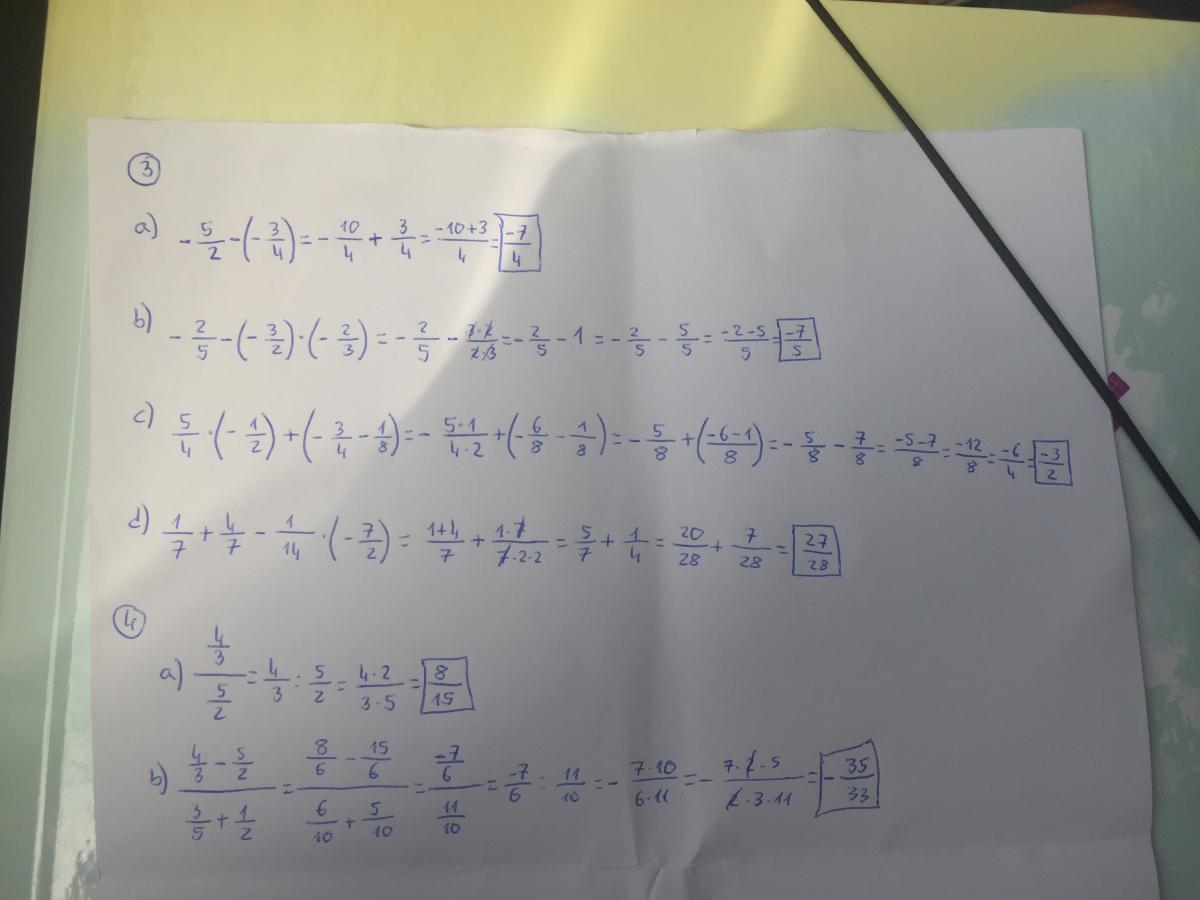 3
a) - 5/2 - (- 3/4) = - 10/4 + 3/4 = -10+3/4 = -7/4
b) - 2/5 - (- 3/2) · (- 2/3) = - 2/5 - 3·2/2·3 = - 2/5 - 1 = - 2/5 - 5/5 = -2-5/5 = -7/5
c) 5/4 · (- 1/2) + (- 3/4 - 1/8) = - 5·1/4·2 + (- 6/8 - 1/8) = - 5/8 + (-6-1/8) = - 5/8 - 7/8 = -5-7/8 = -12/8 = -6/4 = -3/2
d) 1/7 + 4/7 - 1/14 · (- 7/2) = 1+4/7 + 1·7/7·2·2 = 5/7 + 1/4 = 20/28 + 7/28 = 27/28
4
a) 4/3 / 5/2 = 4/3 : 5/2 = 4·2/3·5 = 8/15
b) 4/3 - 5/2 / 3/5 + 1/2 = 8/6 - 15/6 / 6/10 + 5/10 = -7/6 / 11/10 = -7/6 : 11/10 = - 7·10/6·11 = - 7·2·5/2·3·11 = - 35/33